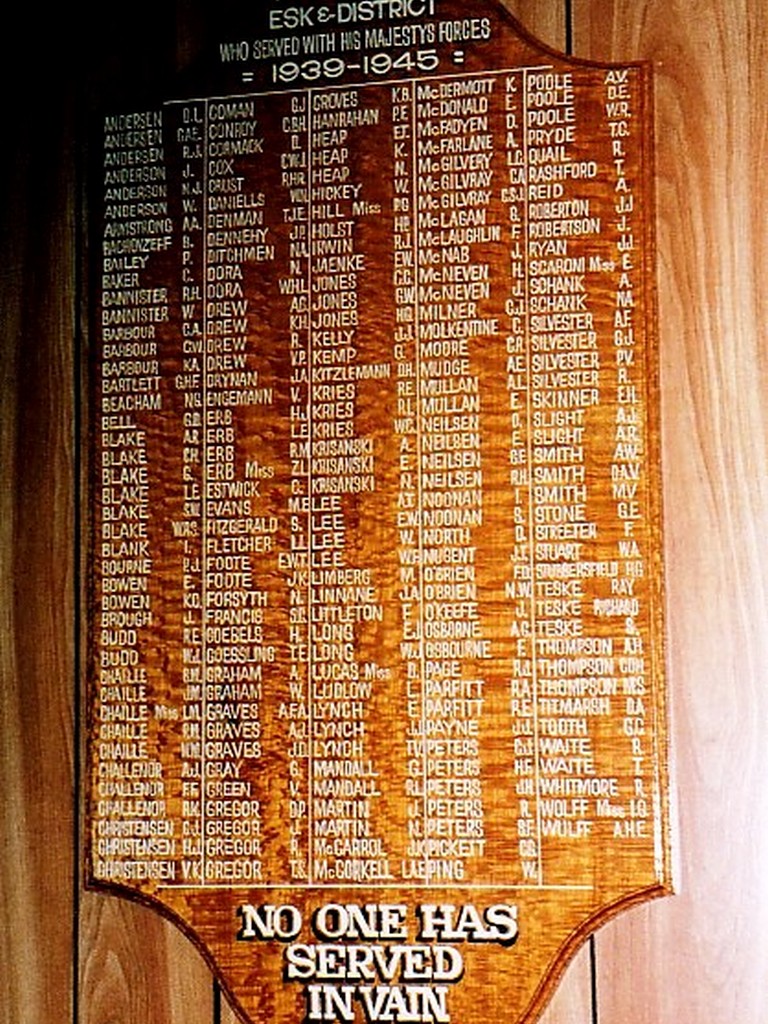 ESK & DISTRICT
WHO SERVED WITH HIS MAJESTYS FORCES
= 1939-1945 =
ANDERSEN D.L.
ANDERSEN G.A.E.
ANDERSEN R.J.
ANDERSON J.
ANDERSON N.J.
ANDERSON W.
ARMSTRONG A.A.
BACHONZEFF B.
BAILEY P.
BAKER C.
BANNISTER R.H.
BANNISTER W.
BARBOUR C.A.
BARBOUR C.W.
BARBOUR K.A.
BARTLETT G.H.F.
BEACHAM N.G.
BELL G.D.
BLAKE A.R.
BLAKE C.H.
BLAKE G.
BLAKE I.E.
BLAKE S.W.
BLAKE W.R.S.
BLANK I.
BOURNE P.J.
BOWEN E.
BOWEN K.O.
BROUGH J.
BUDD R.E.
BUDD W.J.
CHAILLE B.M.
CHAILLE J.M.
CHAILLE Miss L.M.
CHAILLE R.M.
CHAILLE N.M.
CHALLENOR A.J.
CHALLENOR F.F.
CHALLENOR R.K.
CHRISTENSEN D.J.
CHRISTENSEN H.J.
CHRISTENSEN V.K.
COMAN G.J.
CONROY C.B.H.
CORMACK D.
COX C.W.J.
CRUST R.H.R.
DANIELLS W.N.
DENMAN T.J.E.
DENNEHY J.P.
DITCHMEN N.A.
DORA N.
DORA W.H.L.
DREW A.C.
DREW K.H.
DREW R.
DREW V.P.
DRYNAN J.A.
ENGEMANN V.
ERB H.J.
ERB L.E.
ERB R.M.
ERB Miss Z.L.
ESTWICK C.
EVANS M.E.
FITZGERALD S.
FLETCHER L.L.
FOOTE E.W.T.
FOOTE J.K.
FORSYTH N.
FRANCIS S.C.
GOEBELS H.
GOESSLING T.E.
GRAHAM A.
GRAHAM W.
GRAVES A.F.A.
GRAVES A.J.
GRAVES J.D.
GRAY G.
GREEN V.
GREGOR D.P.
GREGOR J.
GREGOR R.
GREGOR T.S.
GROVES K.B.
HANRAHAN P.E.
HEAP E.T.
HEAP K.
HEAP N.
HICKEY W.
HILL Miss P.G.
HOLST H.P.
IRWIN R.J.
JAENKE E.W.
JONES C.C.
JONES G.W.
JONES H.G.
KELLY J.J.
KEMP G.
KITZLEMANN D.H.
KRIES R.E.
KRIES R.L.
KRIES W.C.
KRISANSKI A.
KRISANSKI E.
KRISANSKI N.
LEE A.T.
LEE E.W.
LEE W.
LEE W.F.
LIMBERG M.
LINNANE J.A.
LITTLETON F.
LONG E.J.
LONG W.J.
LUCAS Miss D.
LUDLOW L.
LYNCH E.
LYNCH J.J.
LYNCH T.V.
MANDALL G.
MANDALL R.L.
MARTIN J.
MARTIN N.
McCARROL J.K.
McCORKELL L.A.E.
McDERMOTT K.
McDONALD E.
McFADYEN D.
McFARLANE A.
McGILVERY L.C.
McGILVRAY C.A.
McGILVRAY C.S.J.
McLAGAN G.
McLAUGHLIN F.
McNAB J.
McNEVEN H.
McNEVEN J.
MILNER C.J.
MOLKENTINE C.
MOORE C.R.
MUDGE A.E.
MULLAN A.L.
MULLAN E.
NEILSEN O.
NEILSEN E.
NEILSEN G.E.
NEILSEN R.H.
NOONAN I.
NOONAN S.
NORTH D.
NUGENT J.T.
O'BRIEN F.D.
O'BRIEN N.W.
O'KEEFE J.
OSBORNE A.G.
OSBOURNE E.
PAGE R.J.
PARFITT R.A.
PARFITT R.E.
PAYNE J.J.
PETERS C.J.
PETERS H.F.
PETERS J.H.
PETERS R.
PETERS B.F.
PICKETT C.G.
PING W.
POOLE A.V.
POOLE D.E.
POOLE W.R.
PRYDE T.C.
QUAIL R.
RASHFORD T.
REID A.
ROBERTON J.J.
ROBERTSON J.
RYAN J.J.
SCARONI Miss E.
SCHANK A.
SCHANK N.A.
SILVESTER A.F.
SILVESTER G.J.
SILVESTER P.V.
SILVESTER R.
SKINNER E.H.
SLIGHT A.J.
SLIGHT A.R.
SMITH A.W.
SMITH D.A.V.
SMITH M.V.
STONE G.E.
STREETER F.
STUART W.A.
STUBBERSFIELD H.G.
TESKE RAY
TESKE RICHARD
TESKE S.
THOMPSON A.H.
THOMPSON C.D.H.
THOMPSON M.S.
TITMARSH D.A.
TOOTH G.C.
WAITE R.
WAITE T.
WHITMORE R.
WOLFF Miss I.G.
WULFF A.H.E.
NO ONE HAS
SERVED
IN VAIN